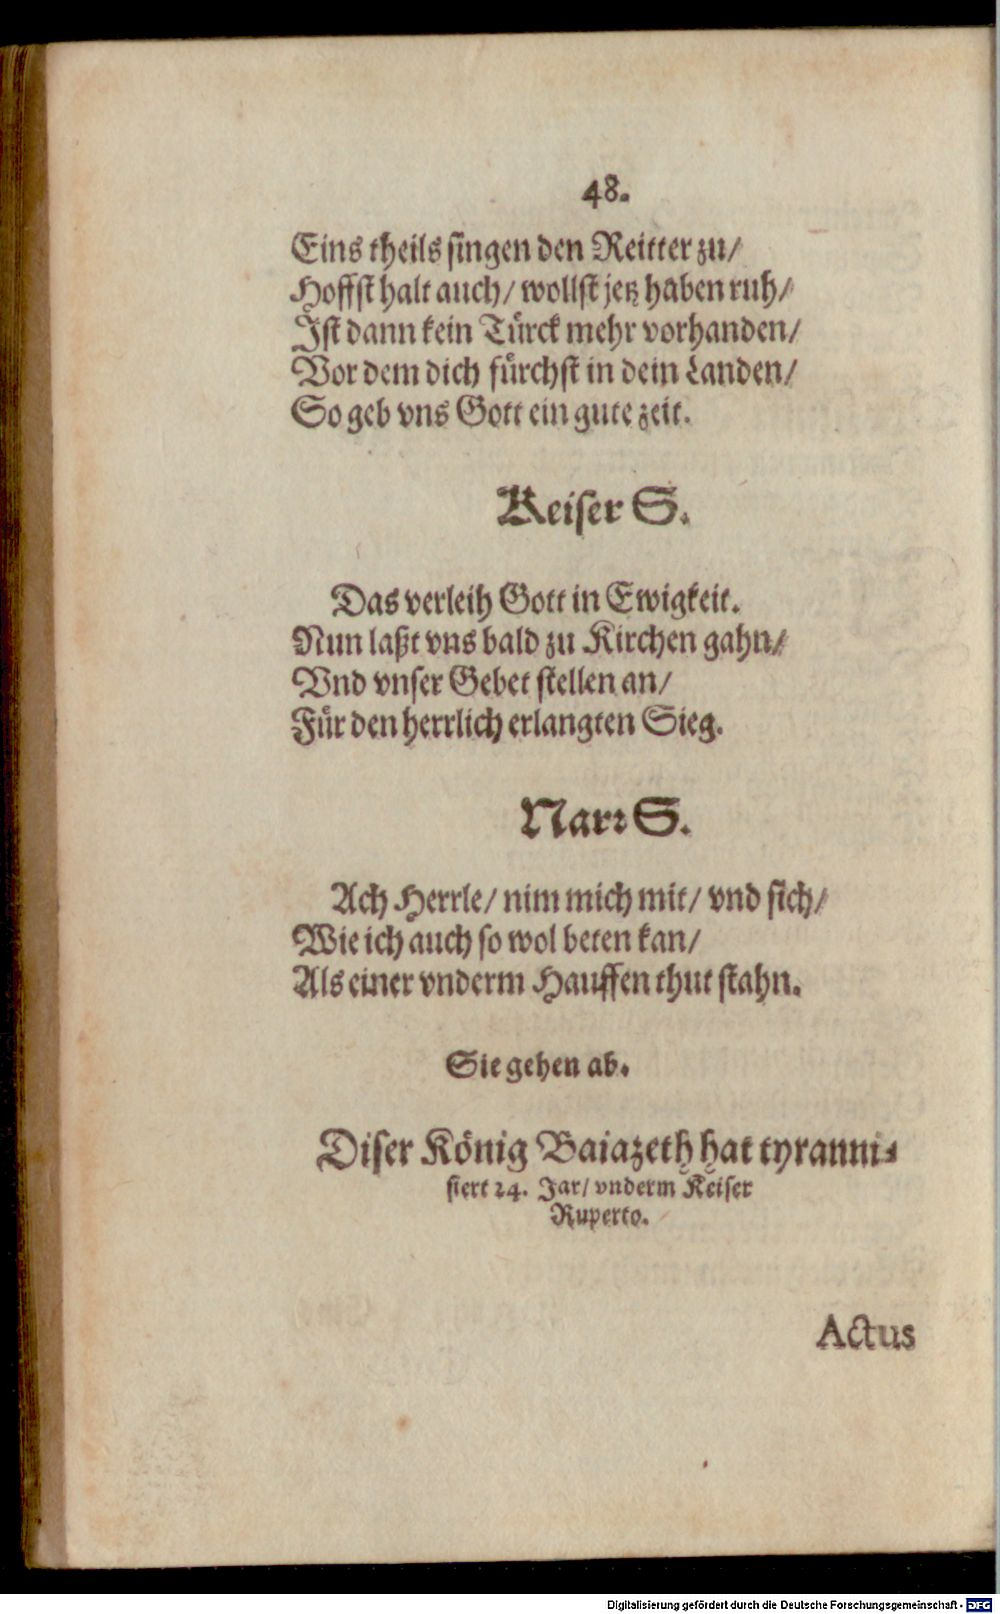 48.
Eins theils singen den Reitter zu/
Hoffst halt auch/ wollst jetz haben ruh/
Ist dann kein Türck mehr vorhanden/
Vor dem dich fürchst in dein Landen/
So geb vns Gott ein gute zeit.
Keiser S.
Das verleih Gott in Ewigkeit.
Nun laßt vns bald zu Kirchen gahn/
Vnd vnser Gebet stellen an/
Für den herrlich erlangten Sieg.
Narr S.
Ach Herrle/ nim mich mit/ vnd sich/
Wie ich auch so wol beten kan/
Als einer vnderm Hauffen thut stahn.
Sie gehen ab.
Diser König Baiazeth hat tyranni-
siert 24. Jar/ vnderm Keiser
Ruperto.
Actus
Digitalisierung gefördert durch die Deutsche Forschungsgemeinschaft - DFG